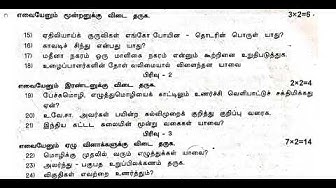 எவையேனும் மூன்றனுக்கு விடை தருக. 3×2=6
15) ஏதிலியாய்க் குருவிகள் எங்கோ போயின - தொடரின் பொருள் யாது?
16) காவடிச் சிந்து என்பது யாது?
17) மதீனா நகரம் ஒரு மாளிகை நகரம் என்னும் கூற்றினை உறுதிபடுத்துக.
18) உழைப்பாளர்களின் தோள் வலிமையால் விளைந்தன யாவை
பிரிவு - 2
எவையேனும் இரண்டனுக்கு விடை தருக. 2×2=4
19) பேச்சுமொழி, எழுத்துமொழியைக் காட்டிலும் உணர்ச்சி வெளிப்பாட்டுச் சக்திமிக்கது
ஏன்?
20) உ.வே.சா. அவர்கள் பயின்ற கல்விமுறைக் குறித்து குறிப்பு வரைக.
21) இந்திய கட்டட கலையின் மூன்று வகைகள் யாவை?
பிரிவு - 3
எவையேனும் ஏழு வினாக்களுக்கு விடை தருக. 7×2=14
22) மொழிக்கு முதலில் வரும் எழுத்துகள் யாவை?
23) அலர்ந்து - பகுபத உறுப்பிலக்கணம் தருக.
24) விகுதிகள் எவற்றை உணர்த்தும்?